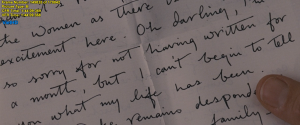 the women as there
excitement here. Oh darling, I'm
so sorry for not having written for
a month, but I can't begin to tell
you what my life has been.
remains despond
family